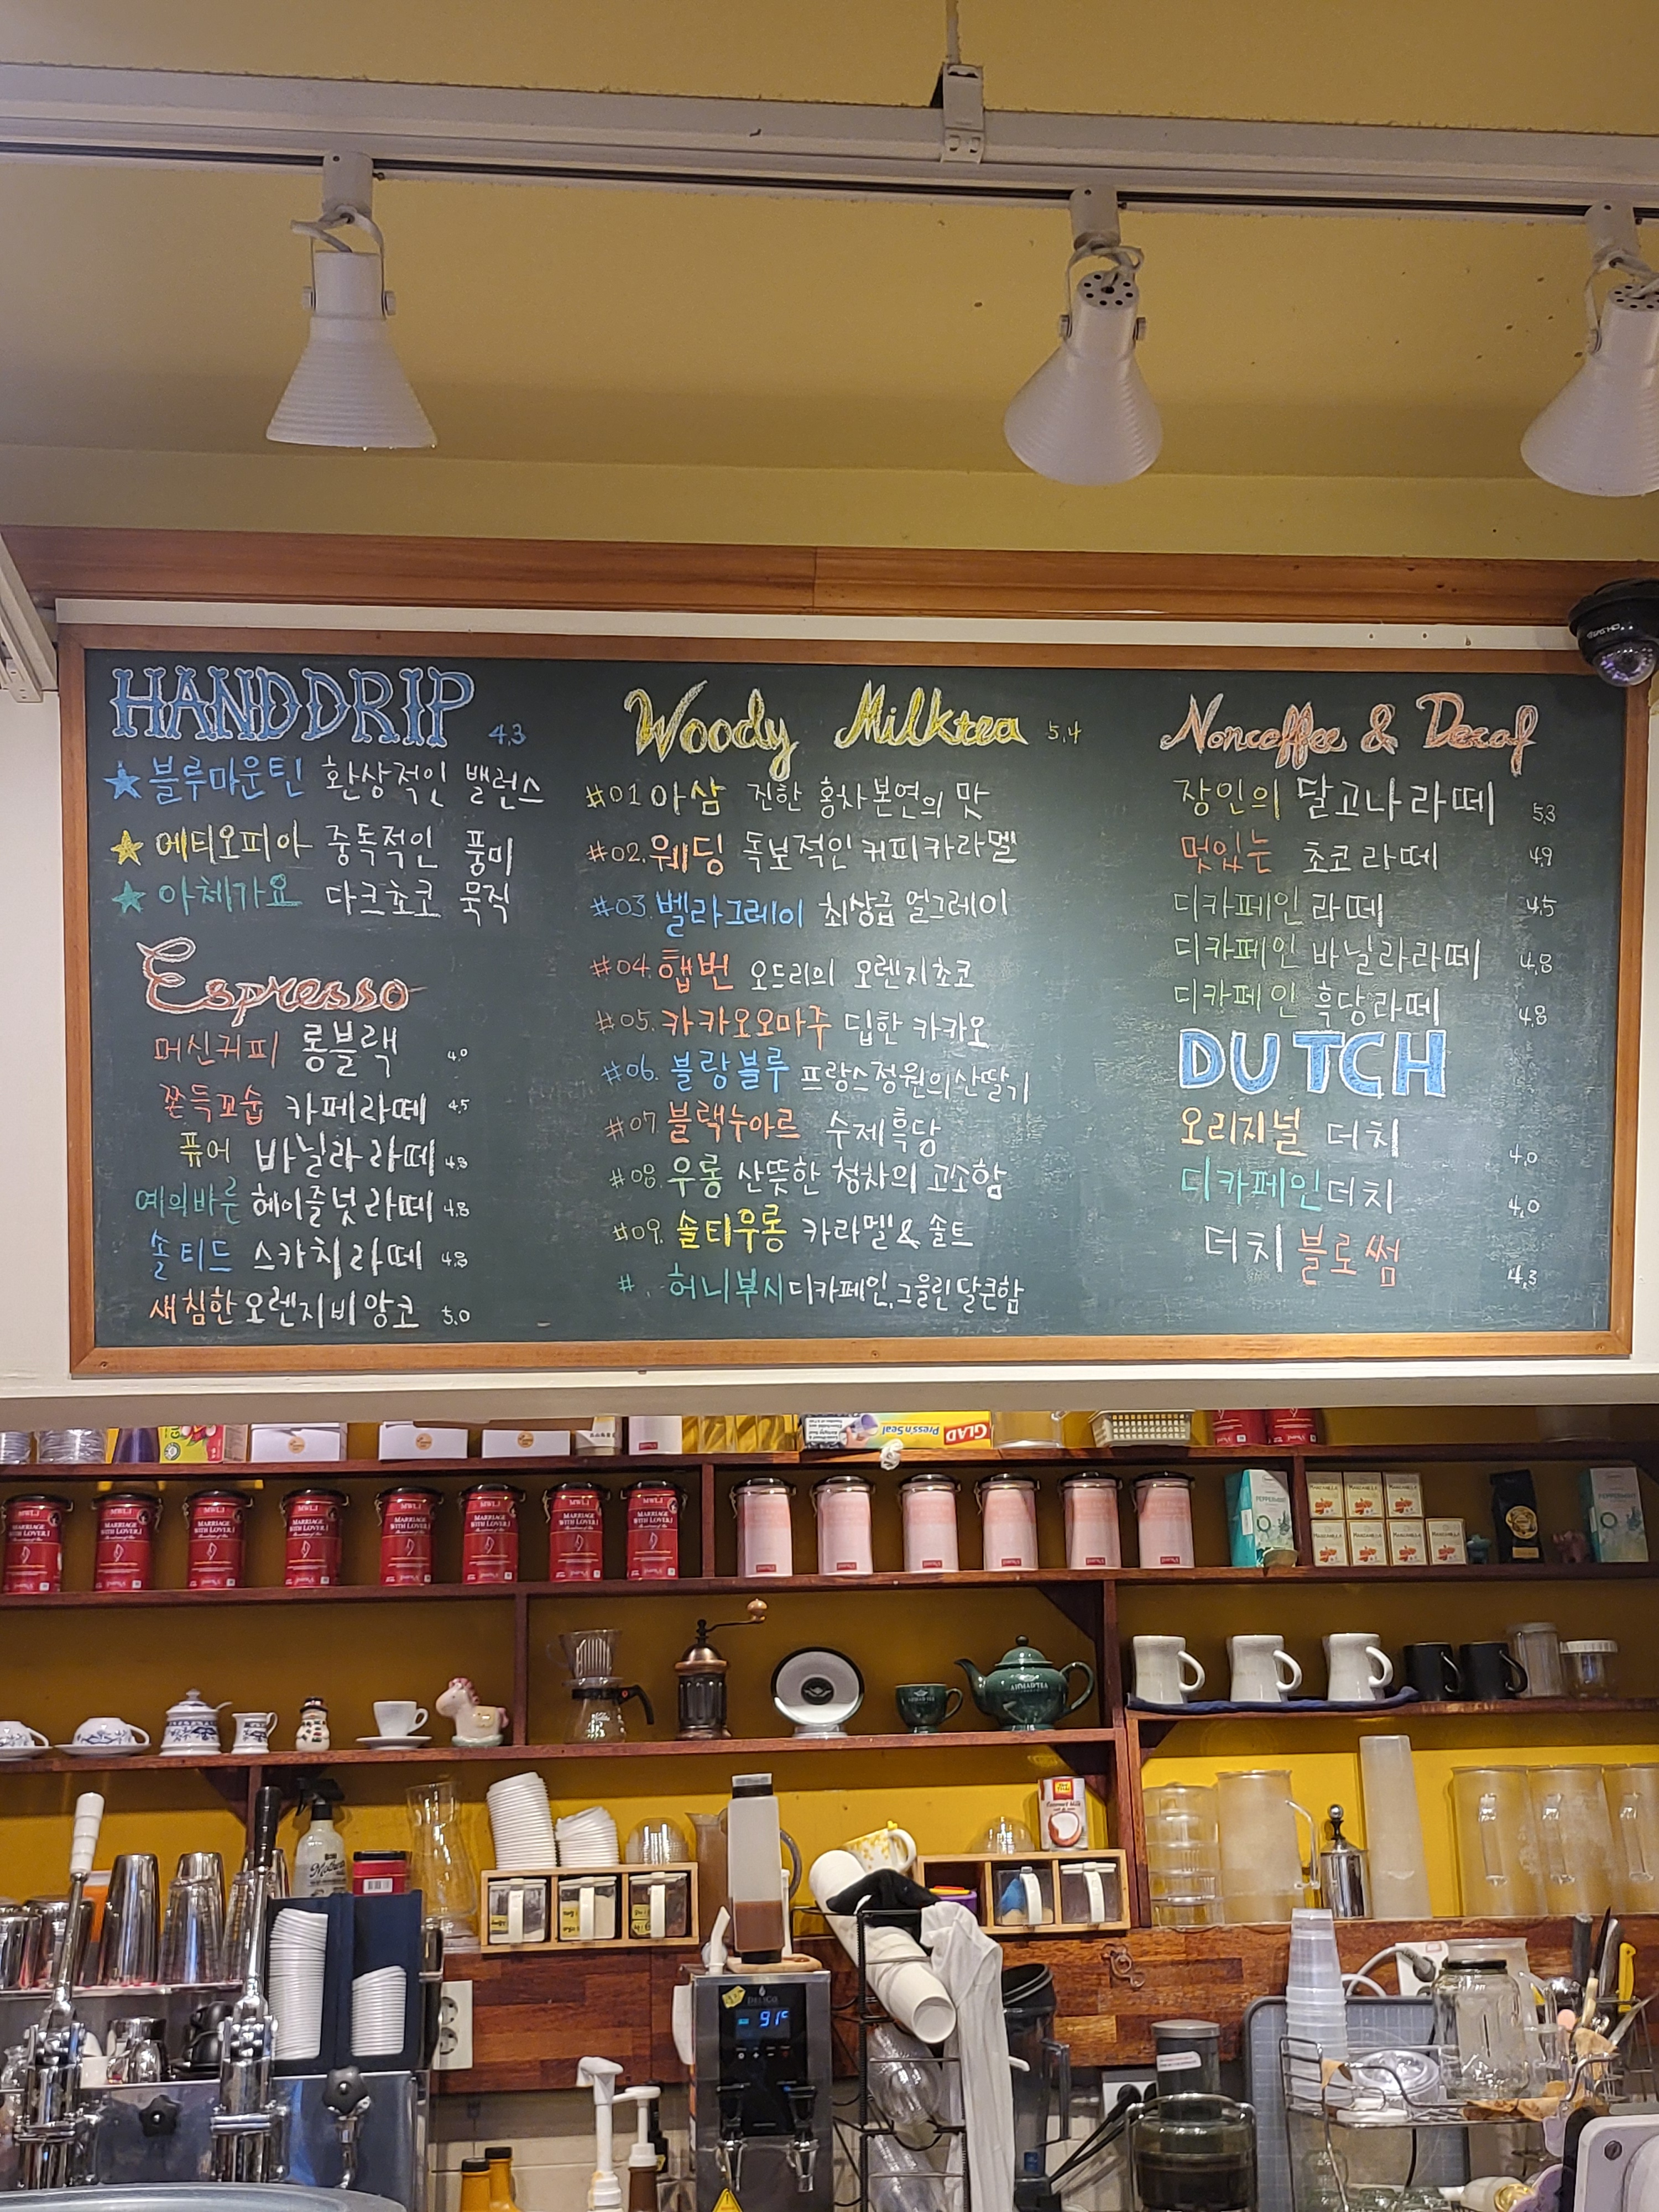 HANDDRIP 4,3
블루마운틴 환상적인 밸런스
에티오피아 중독적인 풍미
아체가요 다크초코 묵직
Espresso
머신커피 롱블랙 4.0
쫀득꼬숩 카페라떼 4.5
퓨어 바닐라 라떼 4.8
예의바른 헤이즐넛 라떼 4.8
솔티드 스카치라떼 4.8
새침한 오렌지비앙코 5.0
Woody Milktea 5.4
#01 아삼 진한 홍차본연의 맛
#02. 웨딩 독보적인 커피카라멜
#03. 벨라그레이 최상급 얼그레이
#04. 햅번 오드리의 오렌지초코
#05. 카카오오마주 딥한 카카오
#06. 블랑블루 프랑스정원의산딸기
#07 블랙누아르 수제흑당
#08. 우롱 산뜻한 청차의 고소함
#09. 솔티우롱 카라멜 & 솔트
#. 허니부시 디카페인, 그을린 달큰함
Noncoffee & Decaf
장인의 달고나 라떼 5.3
멋있는 초코 라떼 4.9
디카페인 라떼 4.5
디카페인 바닐라라떼 4.8
디카페인 흑당라떼 4.8
DUTCH
오리지널 더치 4.0
디카페인 더치 4.0
더치 블로썸 4.3
GLAD
Press'n Seal
MWLJ
MARRIAGE
WITH LOVER.J
MWLJ
MARRIAGE
WITH LOVER.J
MWLJ
MARRIAGE
WITH LOVER.J
MWLJ
MARRIAGE
WITH LOVER.J
MWLJ
MARRIAGE
WITH LOVER.J
MWLJ
MARRIAGE
WITH LOVER.J
MWLJ
MARRIAGE
WITH LOVER.J
MWLJ
MARRIAGE
WITH LOVER.J
PEPPERMINT
MANZANILLA
PEPPERMINT
AHMAD TEA
AHMAD TEA
91°C